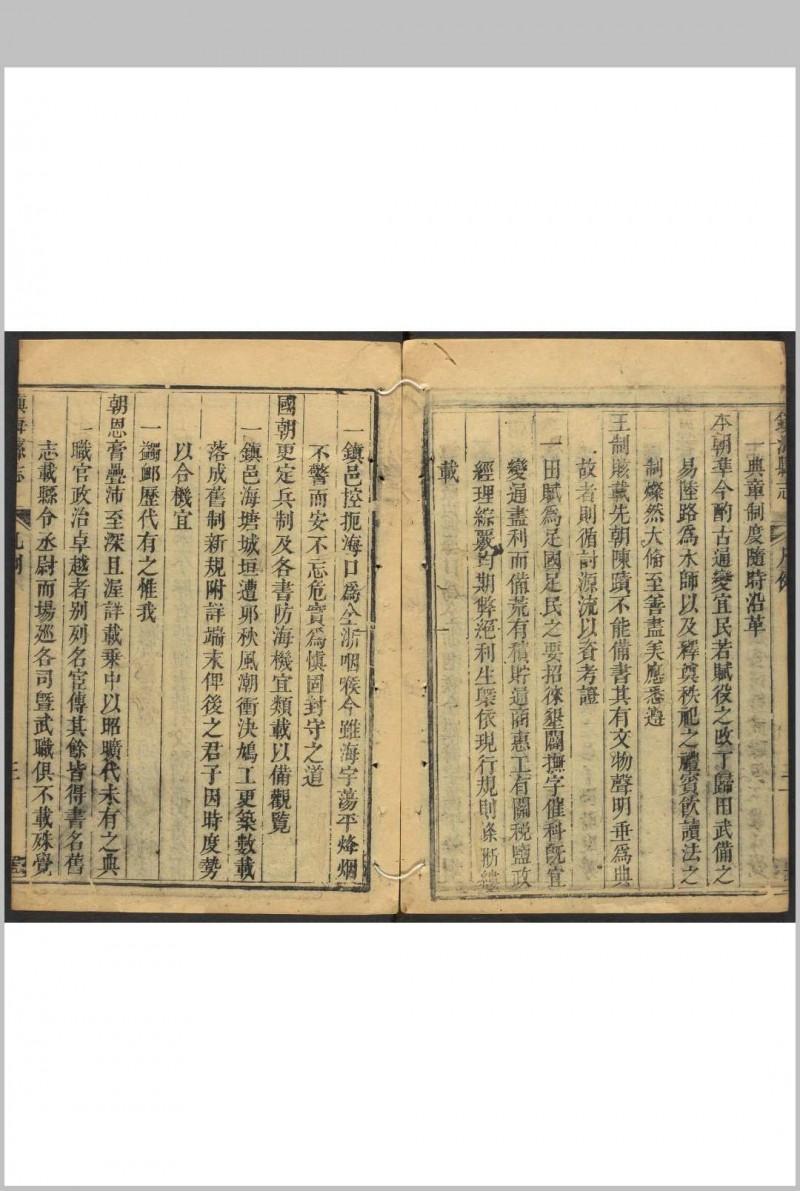 鎮海縣志
凡例
二
一典章制度隨時沿革
本朝準今酌古通變宜民若賦役之改丁歸田武備之
易陸路爲水師以及釋奠秩祀之禮賓飲讀法之
制燦然大備至善盡美應悉遵
王制賅載先朝陳蹟不能備書其有文物聲明垂爲典
故者則循討源流以資考證
一田賦爲足國足民之要招徠墾闢撫字催科旣宜
變通盡利而備荒有積貯通商惠工有關稅鹽政
經理綜嚴均期弊絕利生槩依現行規則條晰縷
載
一鎮邑控扼海口爲全浙咽喉今雖海宇蕩平烽烟
不警而安不忘危實爲愼固封守之道
國朝更定兵制及各書防海機宜類載以備觀覽
一鎮邑海塘城垣遭夘秋風潮衝決鳩工更築數載
落成舊制新規附詳端末俾後之君子因時度勢
以合機宜
一蠲衈歷代有之惟我
朝恩膏疊沛至深且渥詳載乗中以昭曠代未有之典
一職官政治卓越者别列名宦傳其餘皆得書名舊
志載縣令丞尉而場巡各司曁武職俱不載殊覺
鎮海縣志
凡例
三